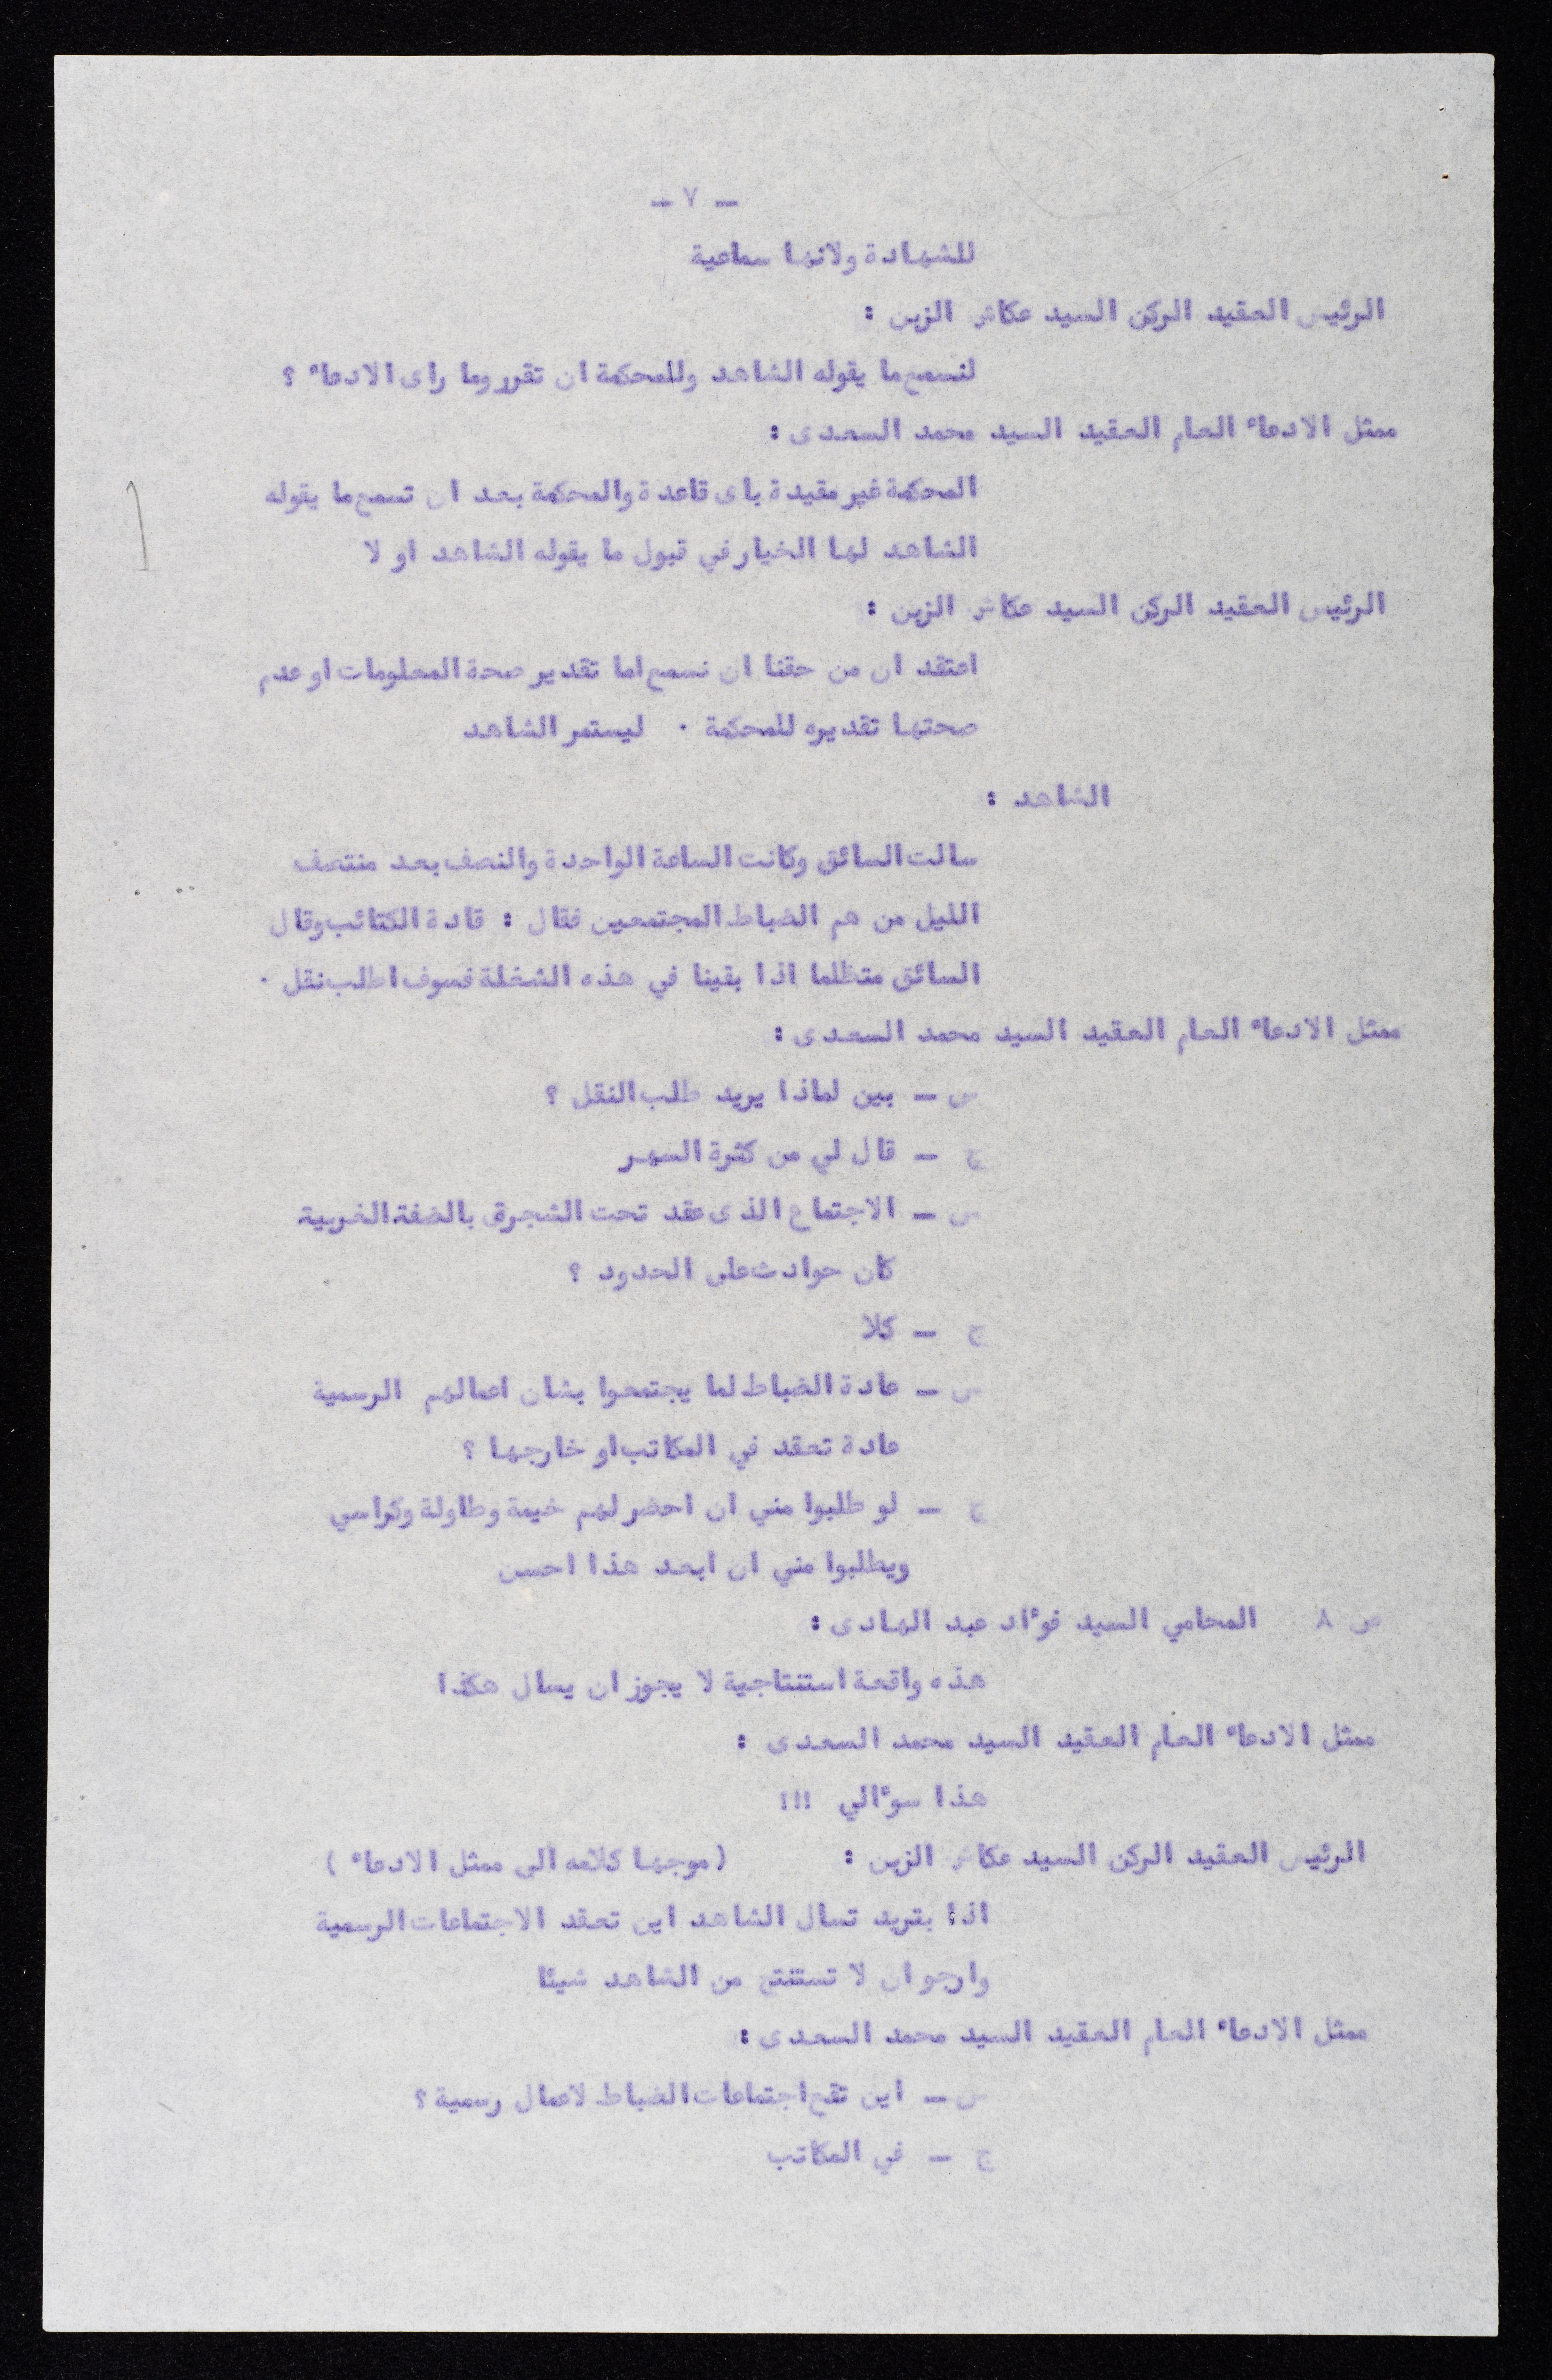 - ٧ -
للشهادة ولانها سماعية
الرئيس العقيد الركن السيد عكاش الزبن :
لنسمع ما يقوله الشاهد وللمحكمة ان تقرر وما راى الادعاء ؟
ممثل الادعاء العام العقيد السيد محمد السعدى :
المحكمة غير مقيدة باى قاعدة والمحكمة بعد ان تسمع ما يقوله
الشاهد لها الخيار في قبول ما يقوله الشاهد او لا
الرئيس العقيد الركن السيد عكاش الزبن :
اعتقد ان من حقنا ان نسمع اما تقدير صحة المعلومات او عدم
صحتها تقديره للمحكمة . ليستمر الشاهد
الشاهد :
سالت السائق وكانت الساعة الواحدة والنصف بعد منتصف
الليل من هم الضباط المجتمعين فقال : قادة الكتائب وقال
السائق متظلما اذا بقينا في هذه الشغلة فسوف اطلب نقل .
ممثل الادعاء العام العقيد السيد محمد السعدى :
س - بين لماذا يريد طلب النقل ؟
ج - قال لي من كثرة السهر
س - الاجتماع الذى عقد تحت الشجرة بالضفة الغربية
كان حوادث على الحدود ؟
ج - كلا
س - عادة الضباط لما يجتمعوا بشان اعمالهم الرسمية
عادة تعقد في المكاتب او خارجها ؟
ج - لو طلبوا مني ان احضر لهم خيمة وطاولة وكراسي
ويطلبوا مني ان ابعد هذا احسن
ص ٨ المحامي السيد فوءاد عبد الهادى :
هذه واقعة استنتاجية لا يجوز ان يسال هكذا
ممثل الادعاء العام العقيد السيد محمد السعدى :
هذا سوءالي !!!
الرئيس العقيد الركن السيد عكاش الزبن : (موجها كلامه الى ممثل الادعاء )
اذا بتريد تسال الشاهد اين تعقد الاجتماعات الرسمية
وارجو ان لا تستنتج من الشاهد شيئا
ممثل الادعاء العام العقيد السيد محمد السعدى :
س - اين تقع اجتماعات الضباط لاعمال رسمية ؟
ج - في المكاتب